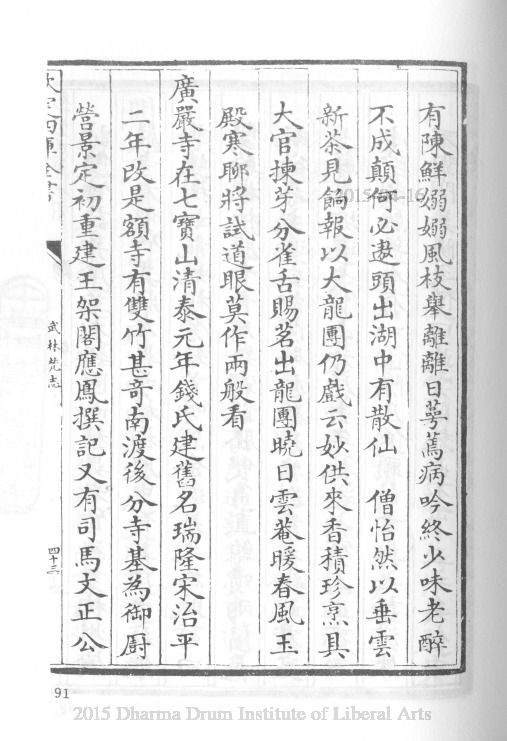 有陳鮮嫋嫋風枝舉離離日萼蔫病吟終少味老醉
不成顛何必遨頭出湖中有散仙 僧怡然以垂雲
新茶見餉報以大龍團仍戲云妙供來香積珍烹具
大官揀芽分雀舌賜茗出龍團曉日雲菴暖春風玉
殿寒聊將試道眼莫作兩般看
廣嚴寺在七寶山清泰元年錢氏建舊名瑞隆宋治平
二年改是額寺有雙竹甚奇南渡後分寺基為御厨
營景定初重建王架閣應鳳撰記又有司馬文正公
欽定四庫全書
武林梵志
四十三
91
2015 Dharma Drum Institute of Liberal Arts